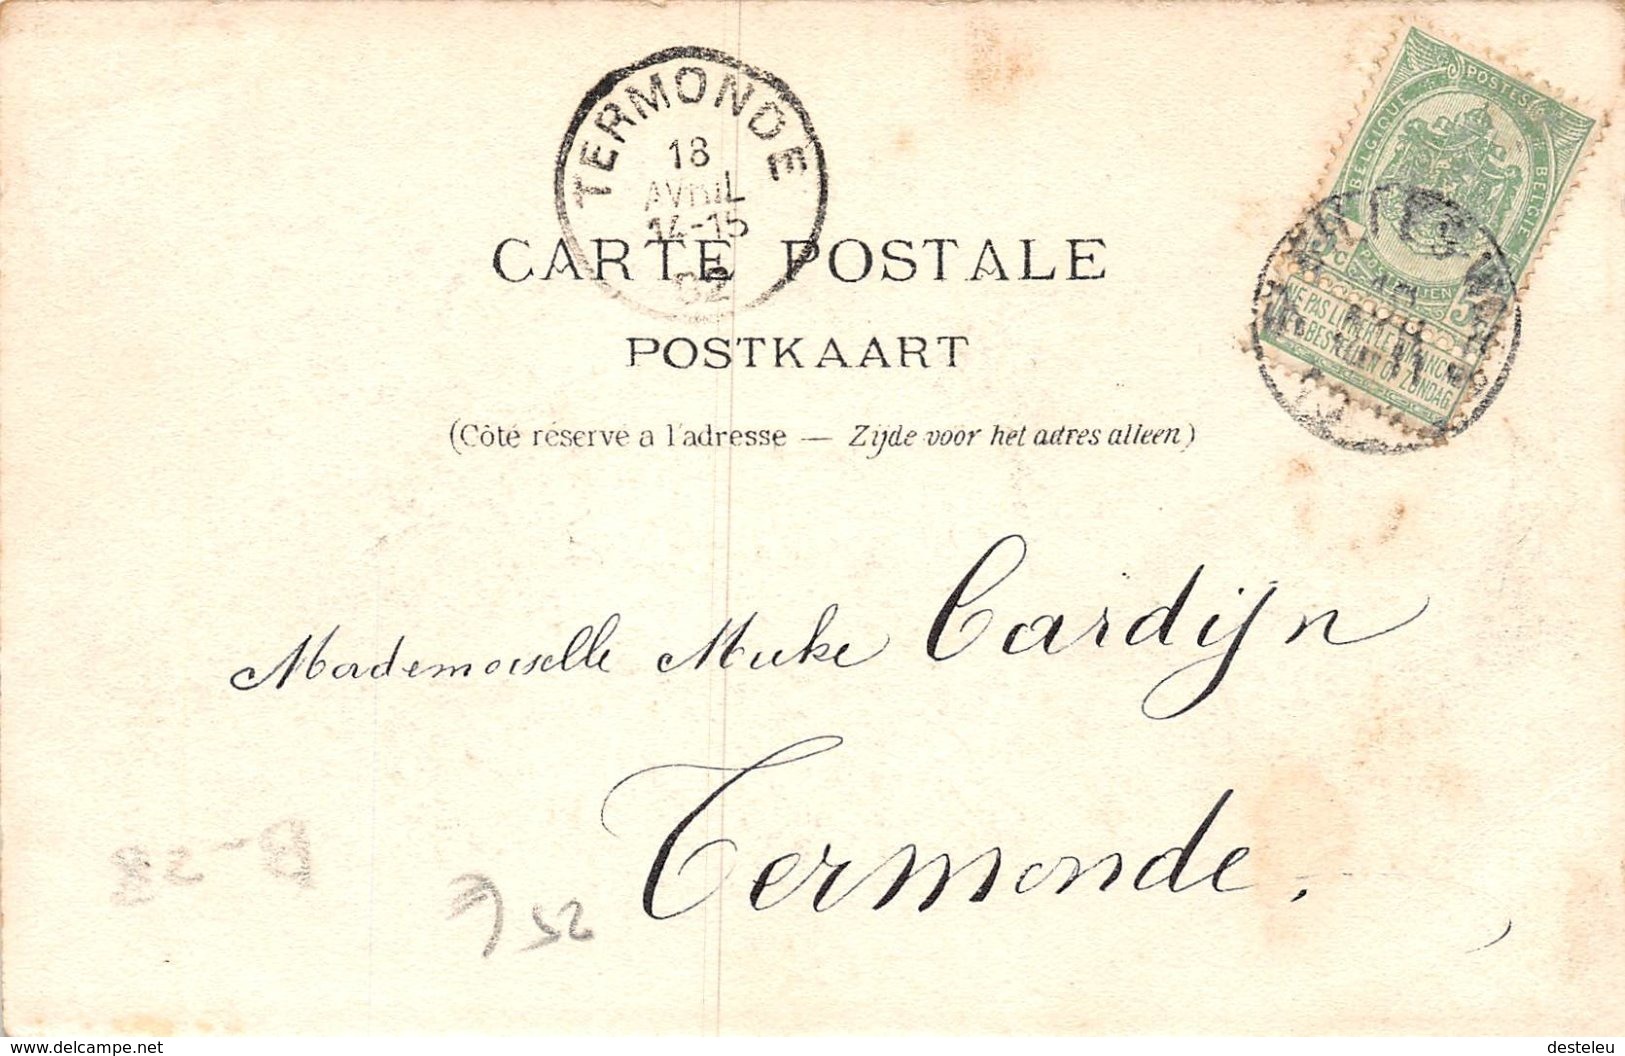 TERMONDE
18
AVRIL
14-15
02
POSTES
BELGIQUE
BELGIE
POSTERIJEN
5c
5c
NE PAS LIVRER LE DIMANCHE
NIET BESTELLEN OP ZONDAG
CARTE POSTALE
POSTKAART
(Côté réservé à l'adresse — Zijde voor het adres alleen)
Mademoiselle Mieke Cardijn
Termonde.
B-28
www.delcampe.net
desteleu